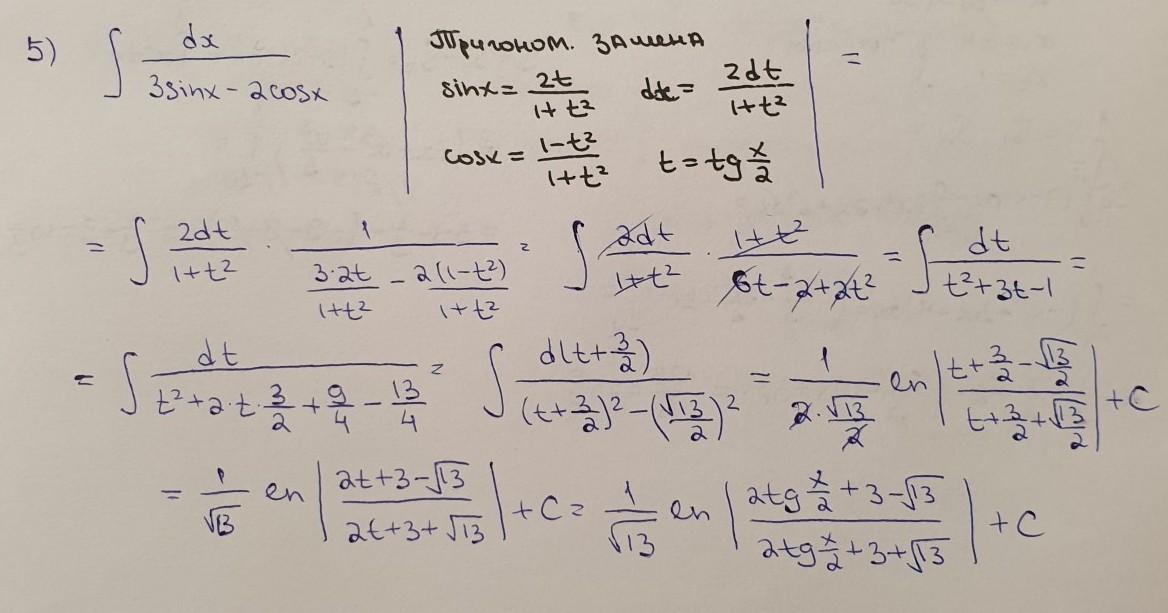 5) ∫ dx/(3sinx - 2cosx) | Тригоном. замена
sinx = 2t/(1+t²) dx = 2dt/(1+t²) | =
cosx = (1-t²)/(1+t²) t = tg x/2
= ∫ 2dt/(1+t²) · 1/(3·2t/(1+t²) - 2(1-t²)/(1+t²)) = ∫ 2dt/(1+t²) · (1+t²)/(6t-2+2t²) = ∫ dt/(t²+3t-1) =
= ∫ dt/(t²+2·t·3/2+9/4-13/4) = ∫ d(t+3/2)/((t+3/2)²-(√13/2)²) = 1/(2·√13/2) ln |(t+3/2-√13/2)/(t+3/2+√13/2)| + C
= 1/√13 ln |(2t+3-√13)/(2t+3+√13)| + C = 1/√13 ln |(2tg x/2 + 3-√13)/(2tg x/2 + 3+√13)| + C